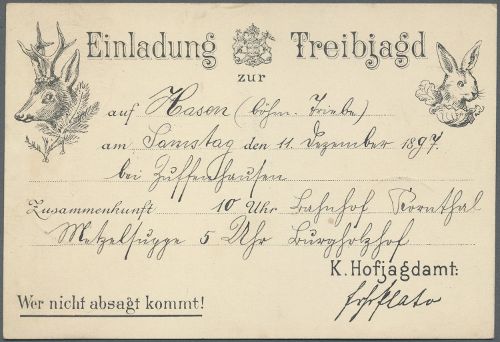 Einladung Treibjagd
zur
auf Hasen (böhm. Triebe)
am Samstag den 11. Dezember 1897.
bei Zuffenhausen
Zusammenkunft 10 Uhr Bahnhof Kornthal
Metzelsuppe 5 Uhr Burgholzhof
K. Hofjagdamt:
Wer nicht absagt kommt! FrhrPlato